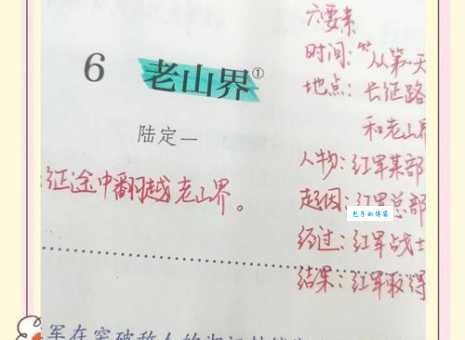 六要素
时间:"从第一天
地点:长征路
和老山界
6 老山界①
陆定一
人物:红军某部
征途中翻越老山界。
起因:红军总部
包子的博客
经过:红军战士
结果:红军取得
军在突破敌人的湘江封锁